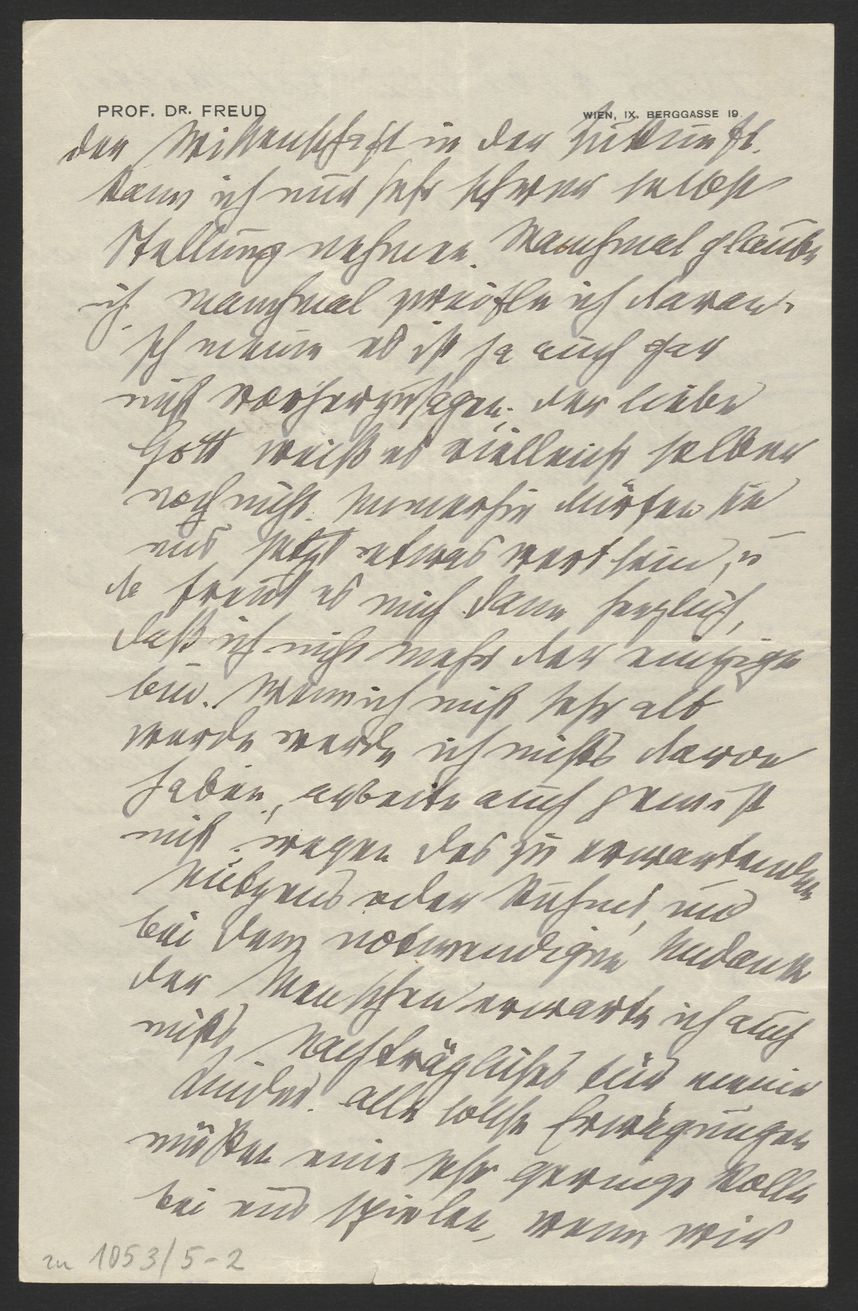 PROF. DR. FREUD WIEN, IX. BERGGASSE 19.
der Wissenschaft in der Zukunft
kann ich nur sehr schwer selbst
Stellung nehmen. Manchmal glaube
ich, manchmal zweifle ich daran.
Ich meine es ist ja auch gar
nicht vorherzusagen. der liebe
Gott weiß es vielleicht selber
noch nicht. Immerhin dürfte sie
uns jetzt etwas wert sein, u
da freut es mich dann herzlich,
daß ich nicht mehr der einzige
bin. Wenn ich nicht sehr alt
werde werde ich nichts davon
haben, arbeite auch gewiß
nicht wegen des zu erwartenden
Nutzens oder Ruhms, und
bei dem notwendigen Undank
der Menschen erwarte ich auch
nichts Nachträgliches für meine
Kinder. Alle solche Erwägungen
müßten eine sehr geringe Rolle
bei uns spielen, wenn wir
zu 1053/5-2